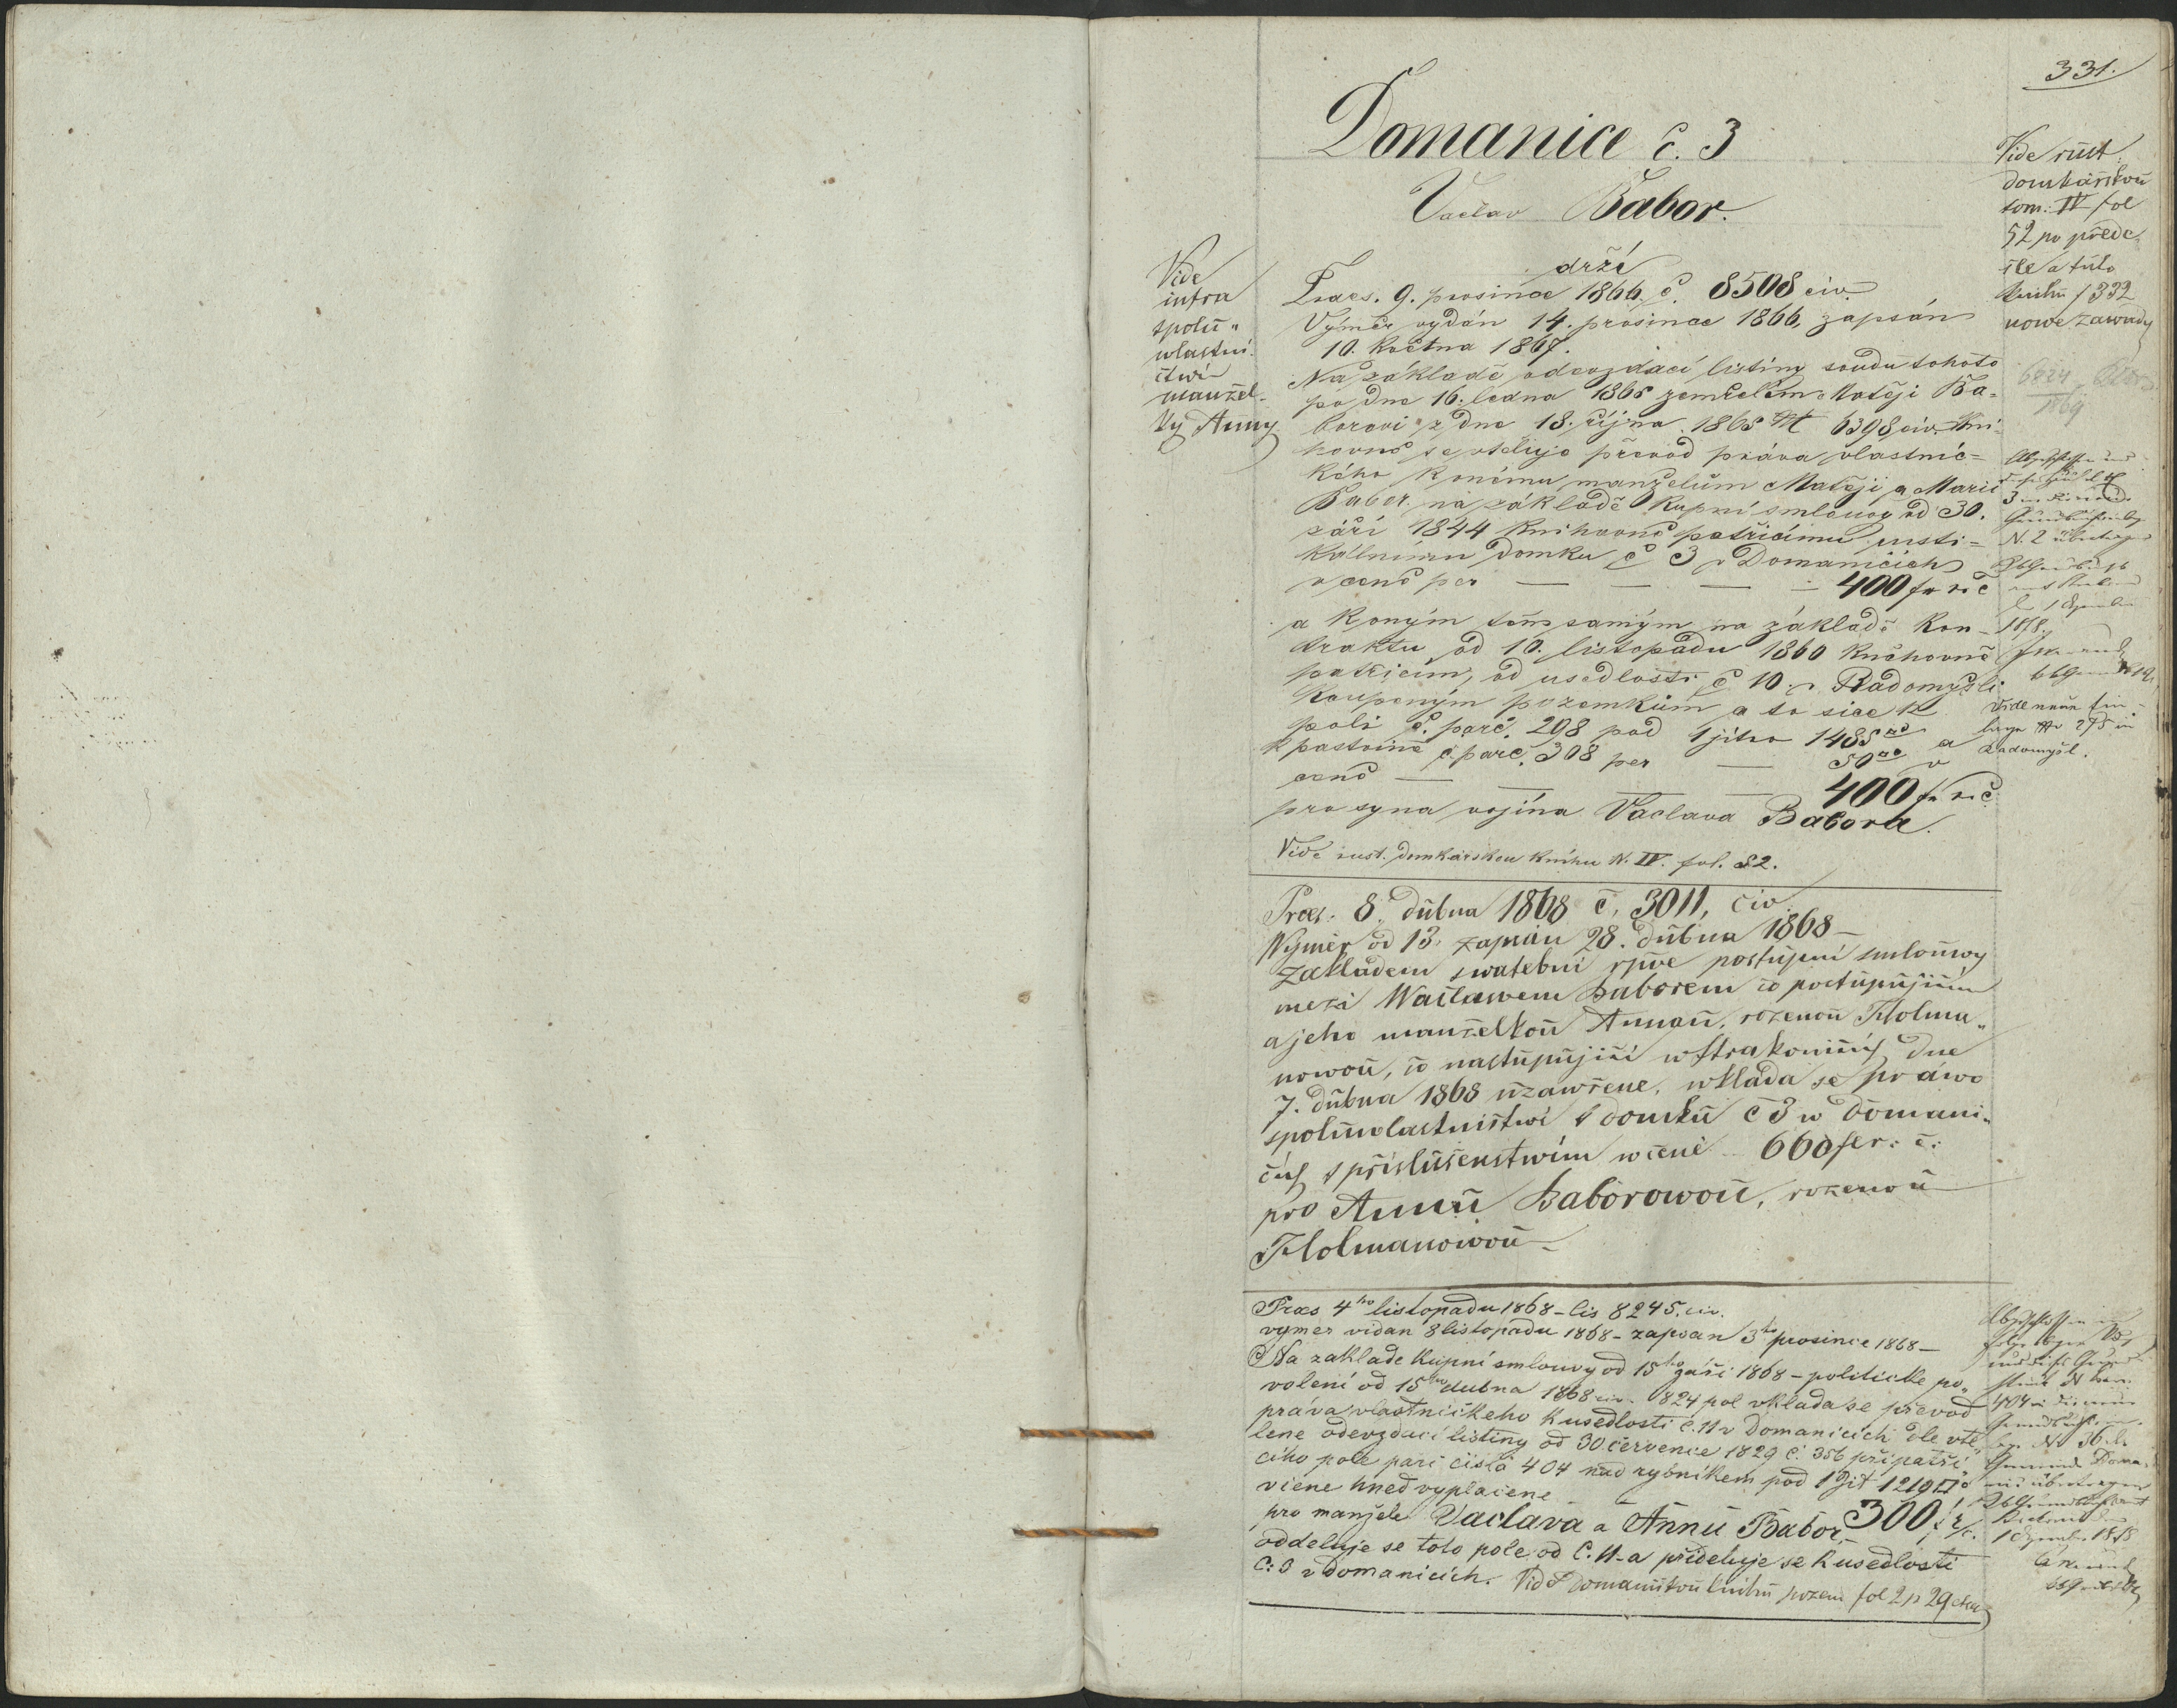 331.
Domanice č. 3
Vaclav Babor.
Vide rust.
domkařskou
tom: IV fol
52 po přede-
šle a tuto
knihu f 332
nowe zawady
Vide
intra
spolu„
wlastni-
ctwí
manžel-
ky Anny
drží
Praes. 9. prosince 1866 č. 8508 civ.
Výměr vydán 14. prosince 1866, zapsán
10. května 1867.
Na základě odevzdací listiny soudu tohoto
po dne 16. ledna 1865 zemřelém Matěji Ba-
borovi z dne 18. října 1865 № 6398 civ. kni-
hovně se vtěluje převod práva vlastnic-
kého k onému manželům Matěji a Marii
Babor na základě kupní smlouvy od 30.
září 1844 knihovně patřicímu rusti-
kálnímu domku č 3 v Domanicích
v ceně per — — — 400 fr r č
a k oným těmsamým na základě kon-
traktu od 10. listopadu 1860 knihovně
patřicím, od usedlosti č 10 v Radomyšli
koupeným pozemkům a to sice k
poli č. parc. 298 pod 1 jitro 1485 □° a
k pastvině č. parc. 308 per — 50 □° v
ceně — — — 400 fr r č
pro syna vojína Vaclava Babora.
Vide rust. domkárskou knihu N. IV. fol. 52.
6824
1869
3
N. 2
1878.
Vide
№ 275 in
Radomyšl.
Praes. 8. dubna 1868 č. 3011, civ.
Wýměr od 13. zapsán 28. dubna 1868 —
Zakladem swatební rpve postupní smlouwy
mezi Waclawem Baborem co postupujícím
a jeho manželkou Annou, rozenou Holma„
nowou, co nastupující w Strakonicích dne
7. dubna 1868 uzawřene, wklada se práwo
spoluwlastnictwí k domku č 3 w Domani„
cích s příslušenstwím w ceně 660 fr. č.
pro Annu Baborowou, rozenou
Holmanowou —
Praes 4ho listopadu 1868 – čis 8245. civ.
vymer vidan 8 listopadu 1868 – zapsan 3ho prosince 1868 —
Na zaklade kupní smlouvy od 15ho záři 1868 – politicke po„
volení od 15ho dubna 1868 civ. 1824 pol vklada se převod
práva vlastnického k usedlosti č. 11 v Domanicích dle vtě„
lene odevzdací listiny od 30 července 1829 č. 356 připatří
cího pole parc čislo 404 nad rybníkem pod 1 Jit 1219 □°
v ceně hned vyplacene
pro manžele Vaclava a Annu Babor, 300 f r/č.
oddeluje se toto pole od č. 11 – a přideluje se k usedlosti
č: 3 v Domanicích. Vide Domanickou knihu pozem fol 2 p 29
404
№ 36